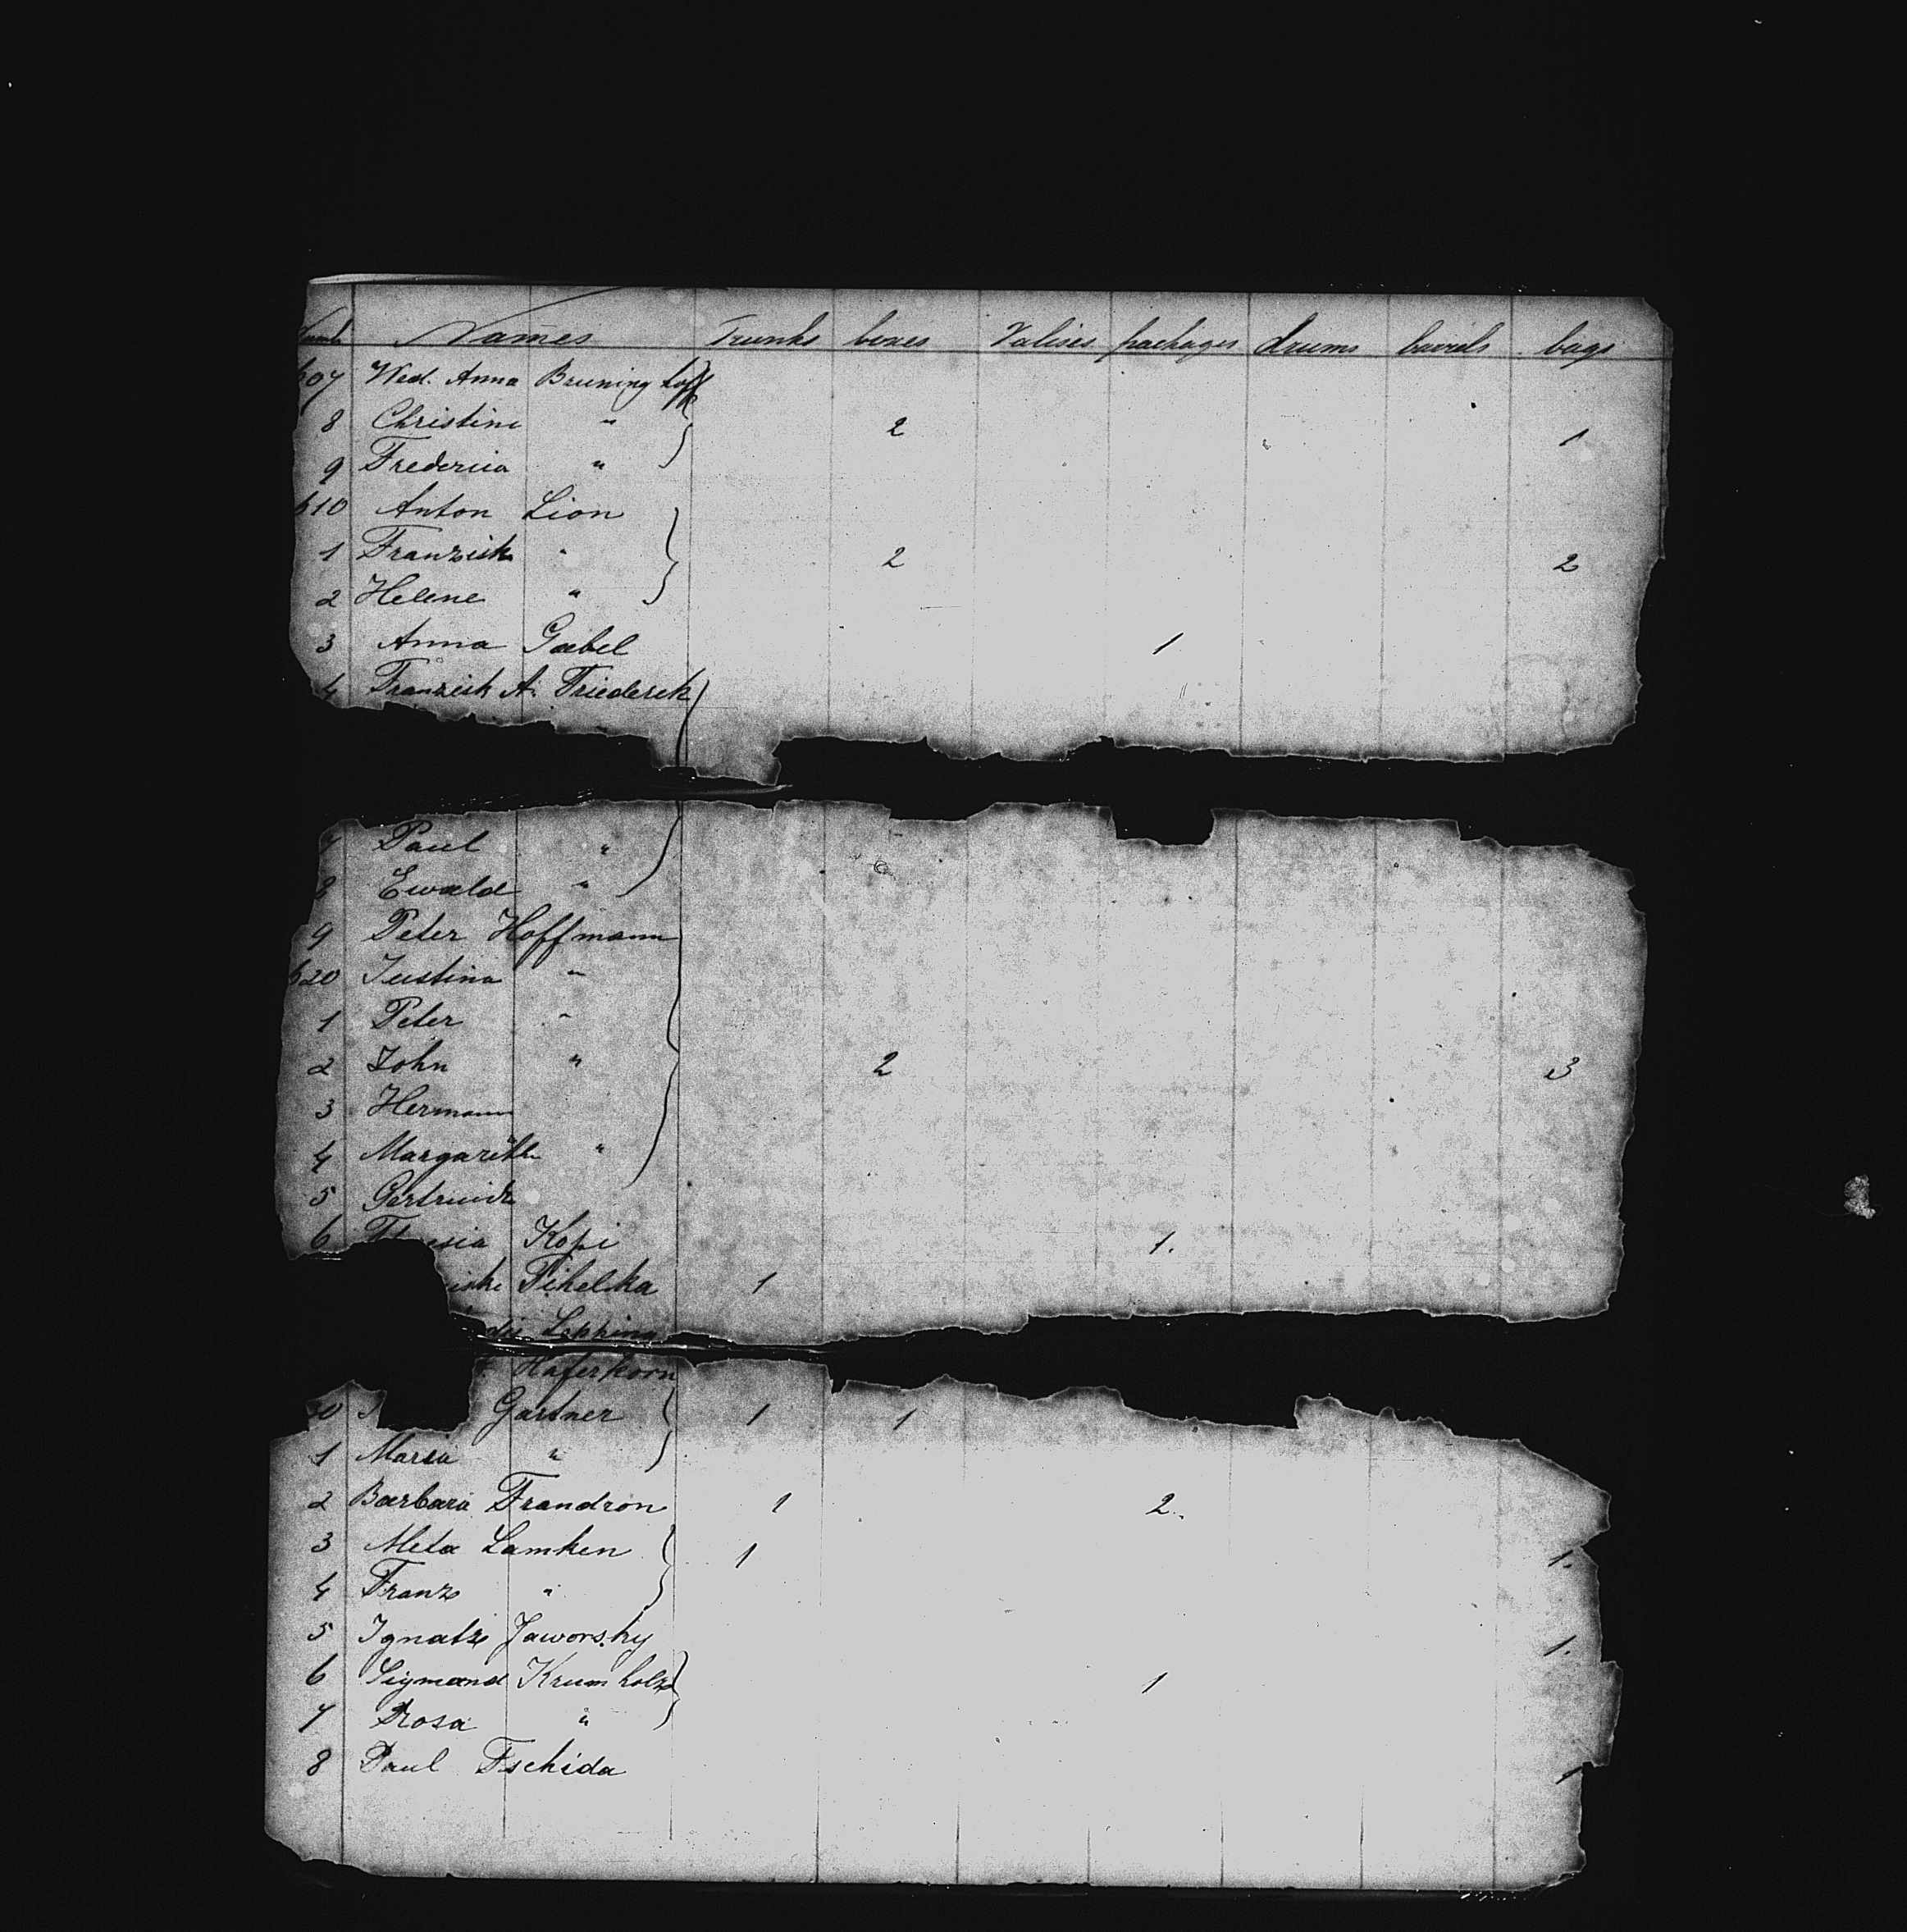 Numb Names Trunks boxes Valises packages drums barrels bags
607 Wed. Anna Bruninghoff
8 Christine " 2 1
9 Fredericia "
610 Anton Lion
1 Franzisk " 2 2
2 Helene "
3 Anna Gabel 1
4 Franzisk A. Friederek
7 Paul "
8 Ewald "
9 Peter Hoffmann
620 Justina "
1 Peter "
2 John " 2 3
3 Hermann
4 Margarethe "
5 Gertrude
6 Kopi 1.
Pihelka 1
Lepping
Haferkorn
30 Gartner 1 1
1 Maria "
2 Barbara Frandron 1 2.
3 Meta Lamken 1 1.
4 Franz "
5 Ignatz Jaworsky 1.
6 Sigmond Krumholz 1
7 Rosa "
8 Paul Tschida 1